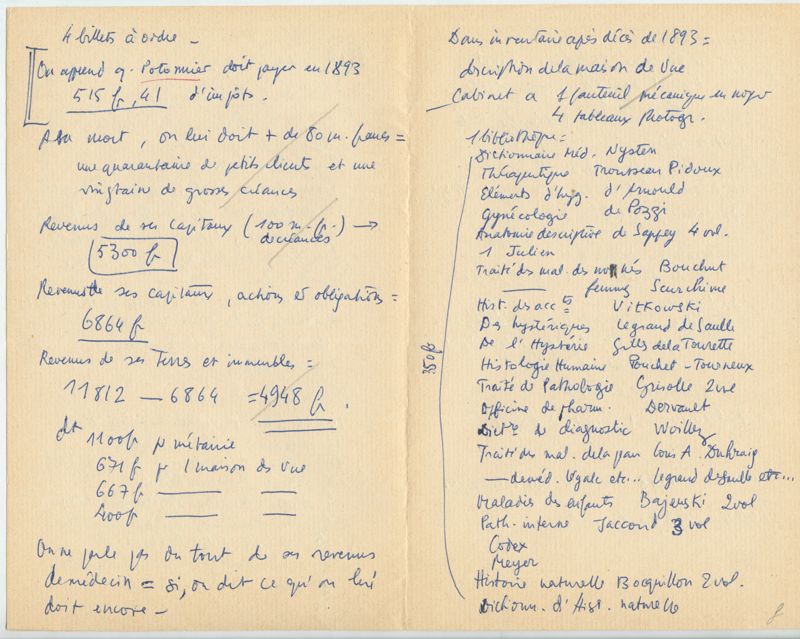 4 billets à ordre –
On apprend q. Potonnier doit payer en 1893
515 fr, 41 d'impôts.
A sa mort, on lui doit + de 80 m. francs =
une quarantaine de petits clients et une
vingtaine de grosses créances
Revenus de ses capitaux (100 m. fr.) →
de créances
5300 fr
Revenus de ses capitaux, actions et obligations =
6864 fr
Revenus de ses Terres et immeubles =
11812 – 6864 = 4948 fr.
dt 1100 fr pr métairie
671 fr pr 1 maison de Vue
667 fr —— ——
400 fr —— ——
On ne parle pas du tout de ses revenus
de médecin = si, on dit ce qu'on lui
doit encore –
Dans inventaire après décès de 1893 =
description de la maison de Vue
Cabinet a 1 fauteuil mécanique en noyer
4 tableaux Photogr.
1 bibliothèque =
Dictionnaire Méd. Nysten
Thérapeutique Trousseau Pidoux
Eléments d'hyg. d'Arnould
Gynécologie de Pozzi
Anatomie descriptive de Sappey 4 vol.
1 Julien
Traité des mal. des nés Bouchut
—— femmes
Hist. des acc ts Vitkowski
Des hystériques Legrand de Saulle
De l'Hystérie Gilles de la Tourette
Histologie Humaine Pouchet - Tourneux
Traité de Pathologie Grisolle 2 vol
Officine de pharm. Dervault
Dict re de diagnostic Woillez
Traité des mal. de la peau Louis A. Duhring
—— de méd. légale etc... Legrand de Saulle etc...
Maladies des enfants Bajenski 2 vol
Path. interne Jaccoud 3 vol
Codex
Meyer
Histoire naturelle Bocquillon 2 vol.
Dictionn. d'Hist. naturelle
350 fr